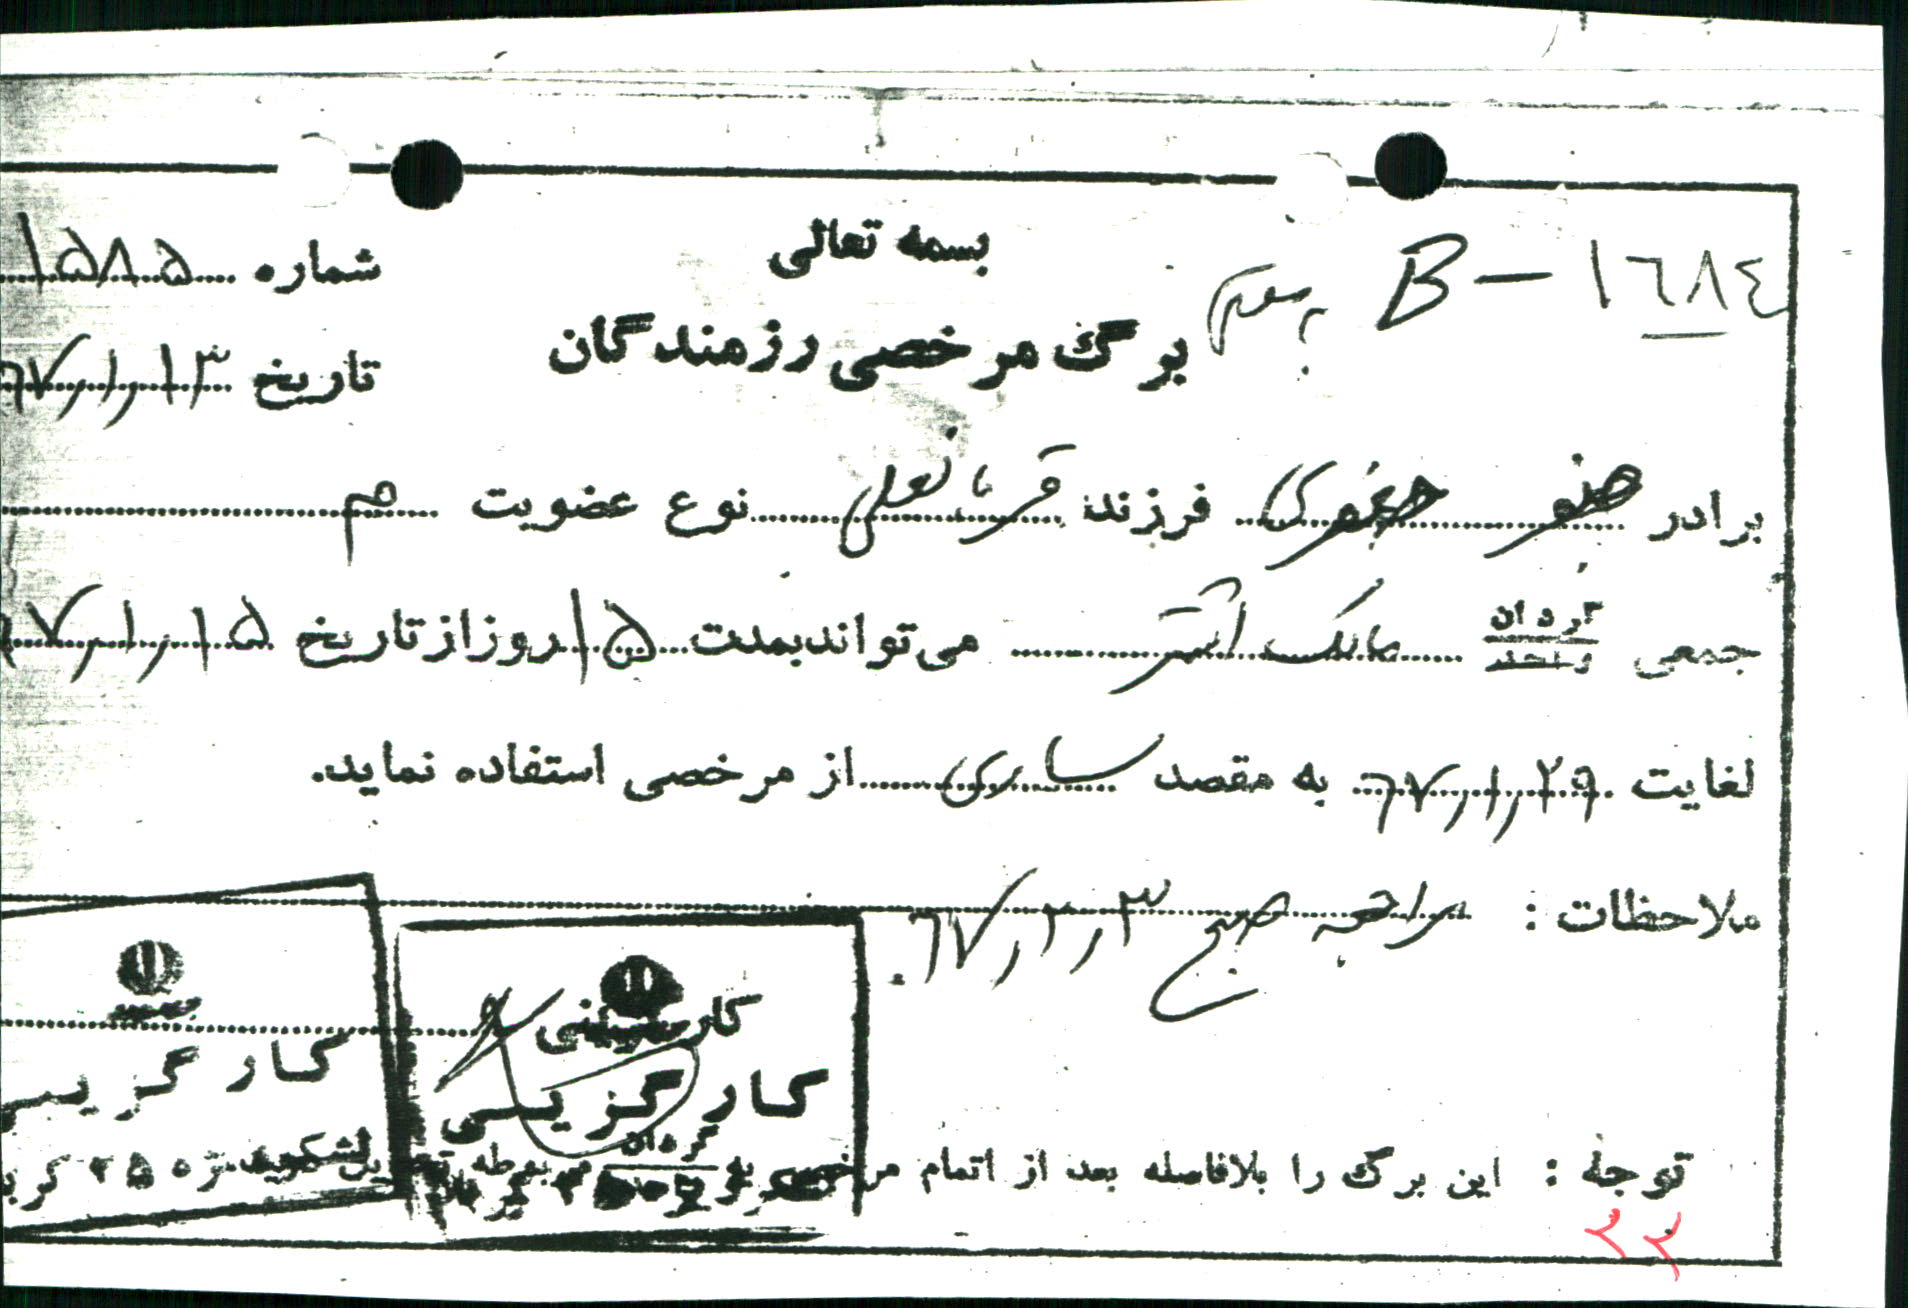 بسمه تعالی
B - ١٦٨٤
شماره ۱۵۸۵
برگ مرخصی رزمندگان
تاریخ ۶۷/۱/۱۳
برادر صفر جعفری فرزند قربانعلی نوع عضویت م
جمعی گردان واحد مالک اشتر می‌تواند بمدت ۱۵ روز از تاریخ ۶۷/۱/۱۵
لغایت ۶۷/۱/۲۹ به مقصد ساری از مرخصی استفاده نماید.
ملاحظات : مراجعه صبح ۶۷/۲/۳
کار گزینی
کار گزینی
توجه : این برگ را بلافاصله بعد از اتمام مرخصی به گردان مربوطه
لشکر ویژه ۲۵ کربلا
۲۲